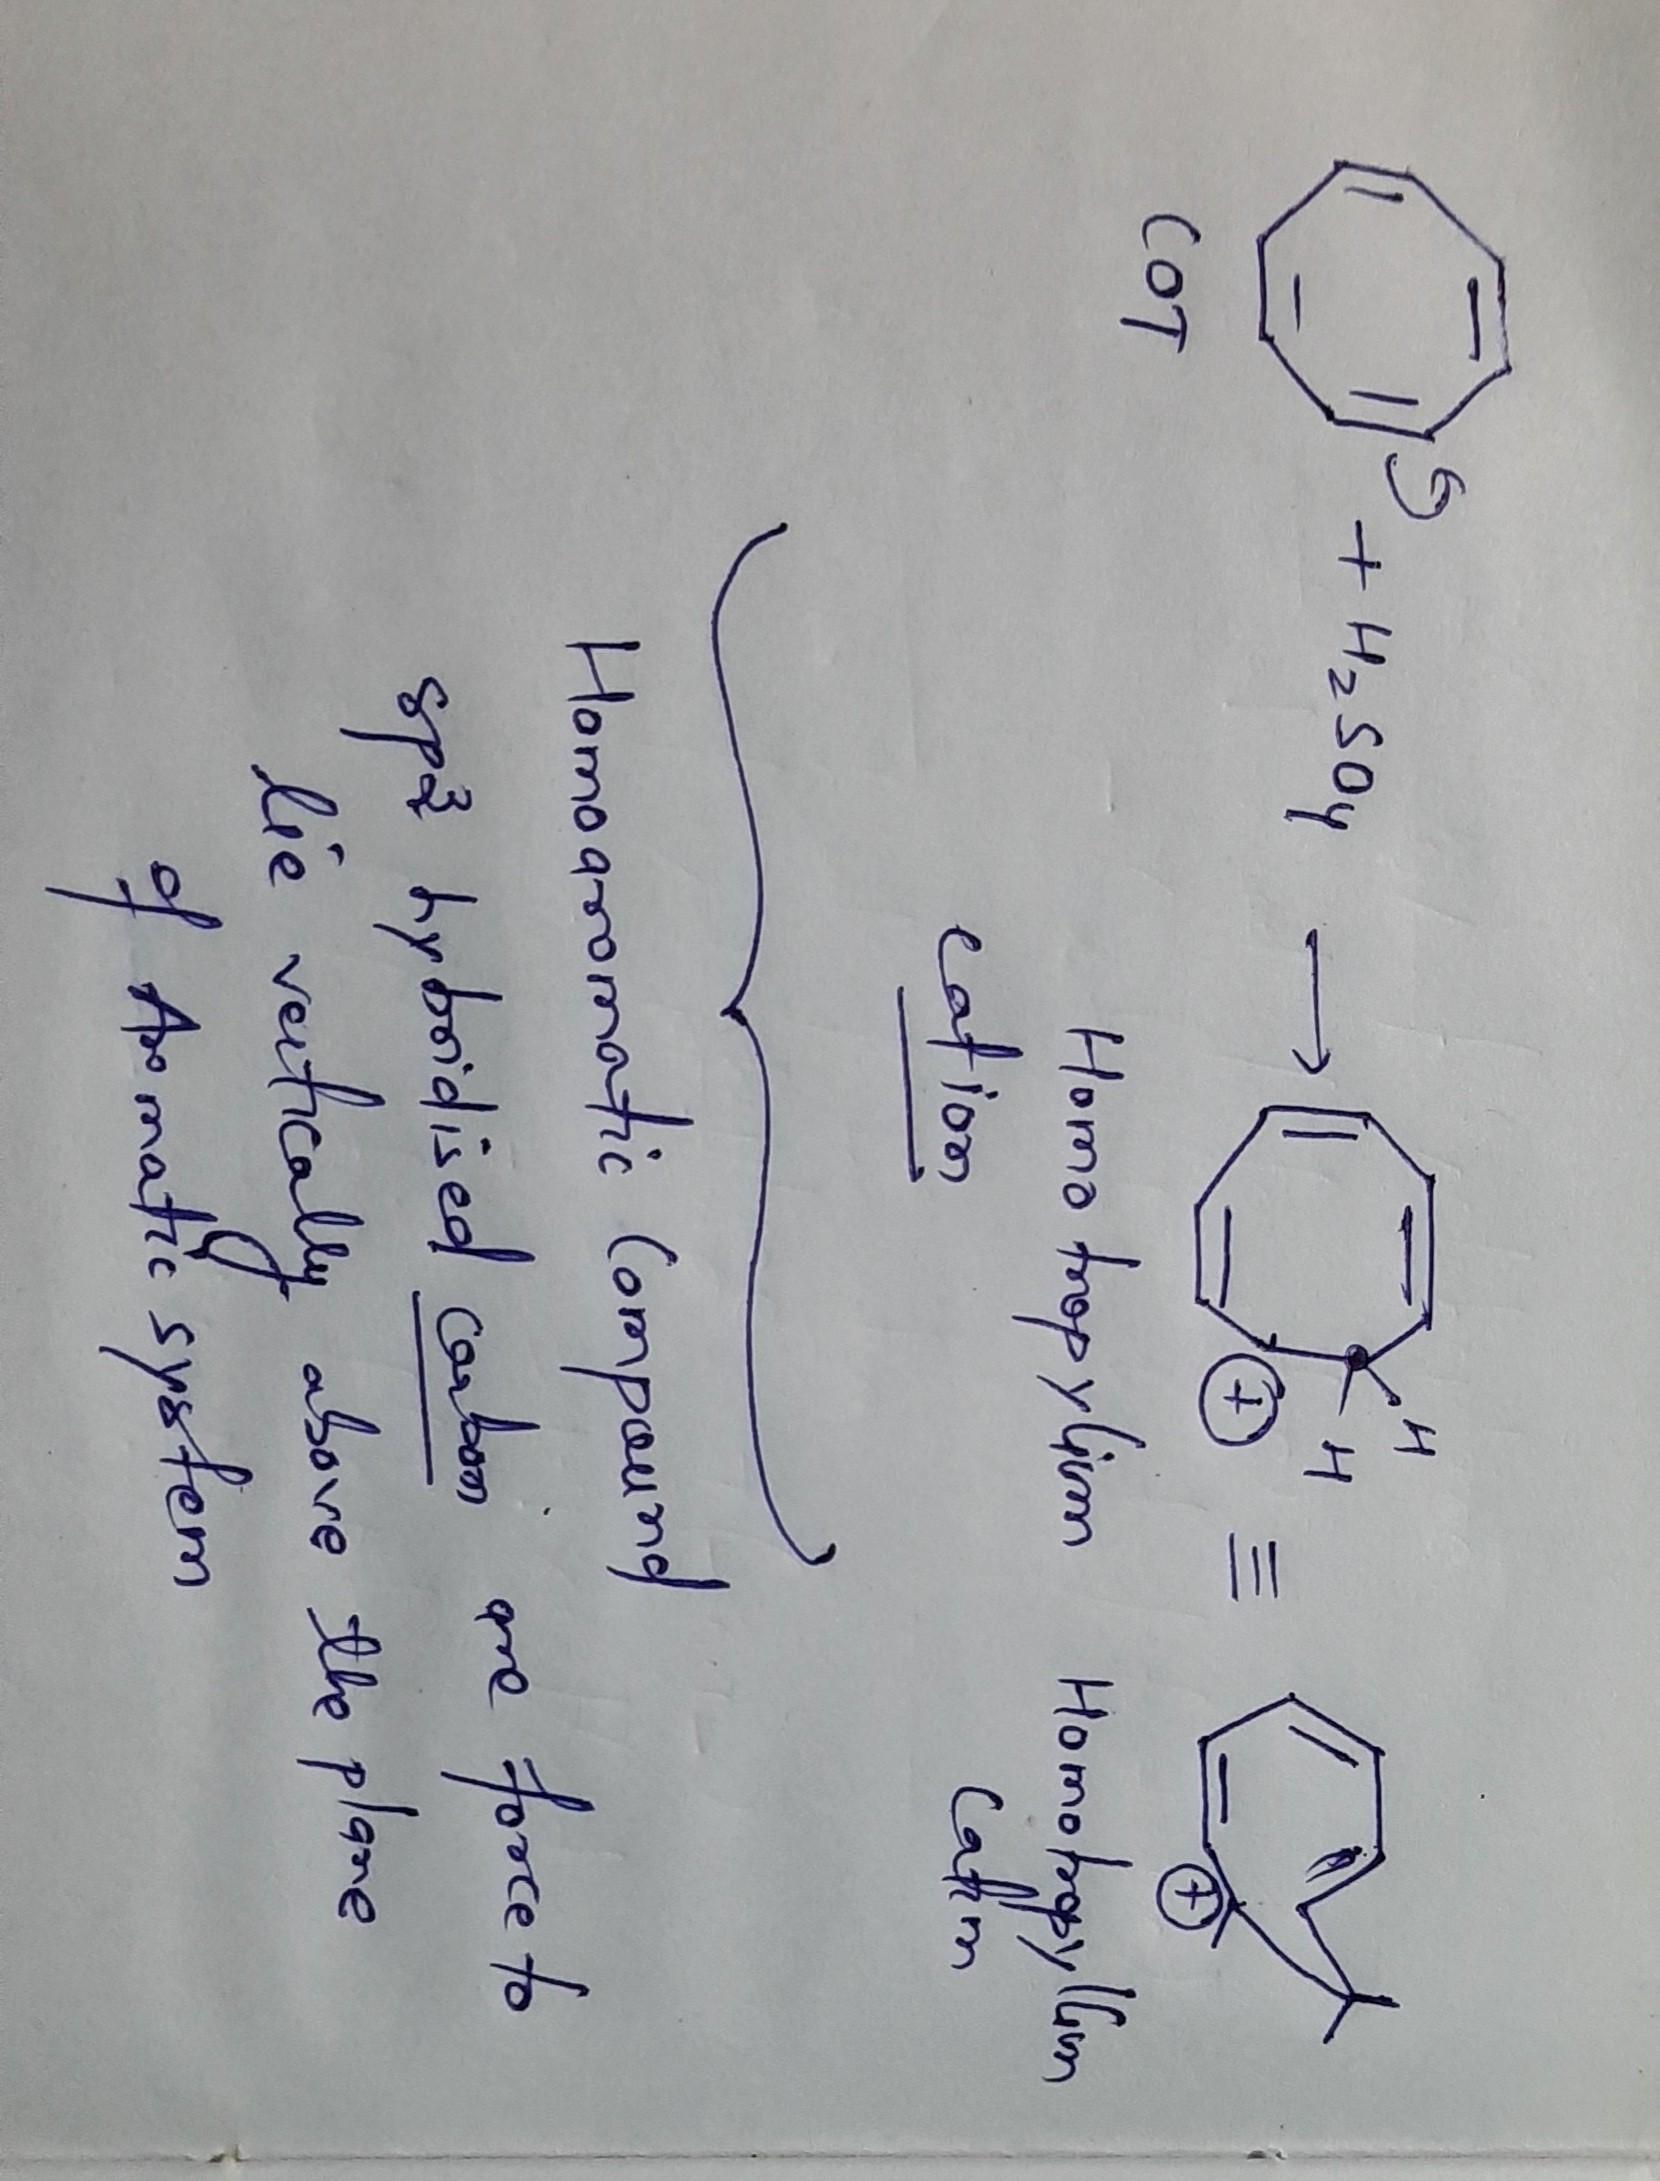 + H₂SO₄ → H H ⊕ ≡ ⊕
COT
Homo tropylium Homotropyllium
cation Cation
Homoaromatic Compound
sp³ hybridised carbon are force to
lie vertically above the plane
of Aromatic system